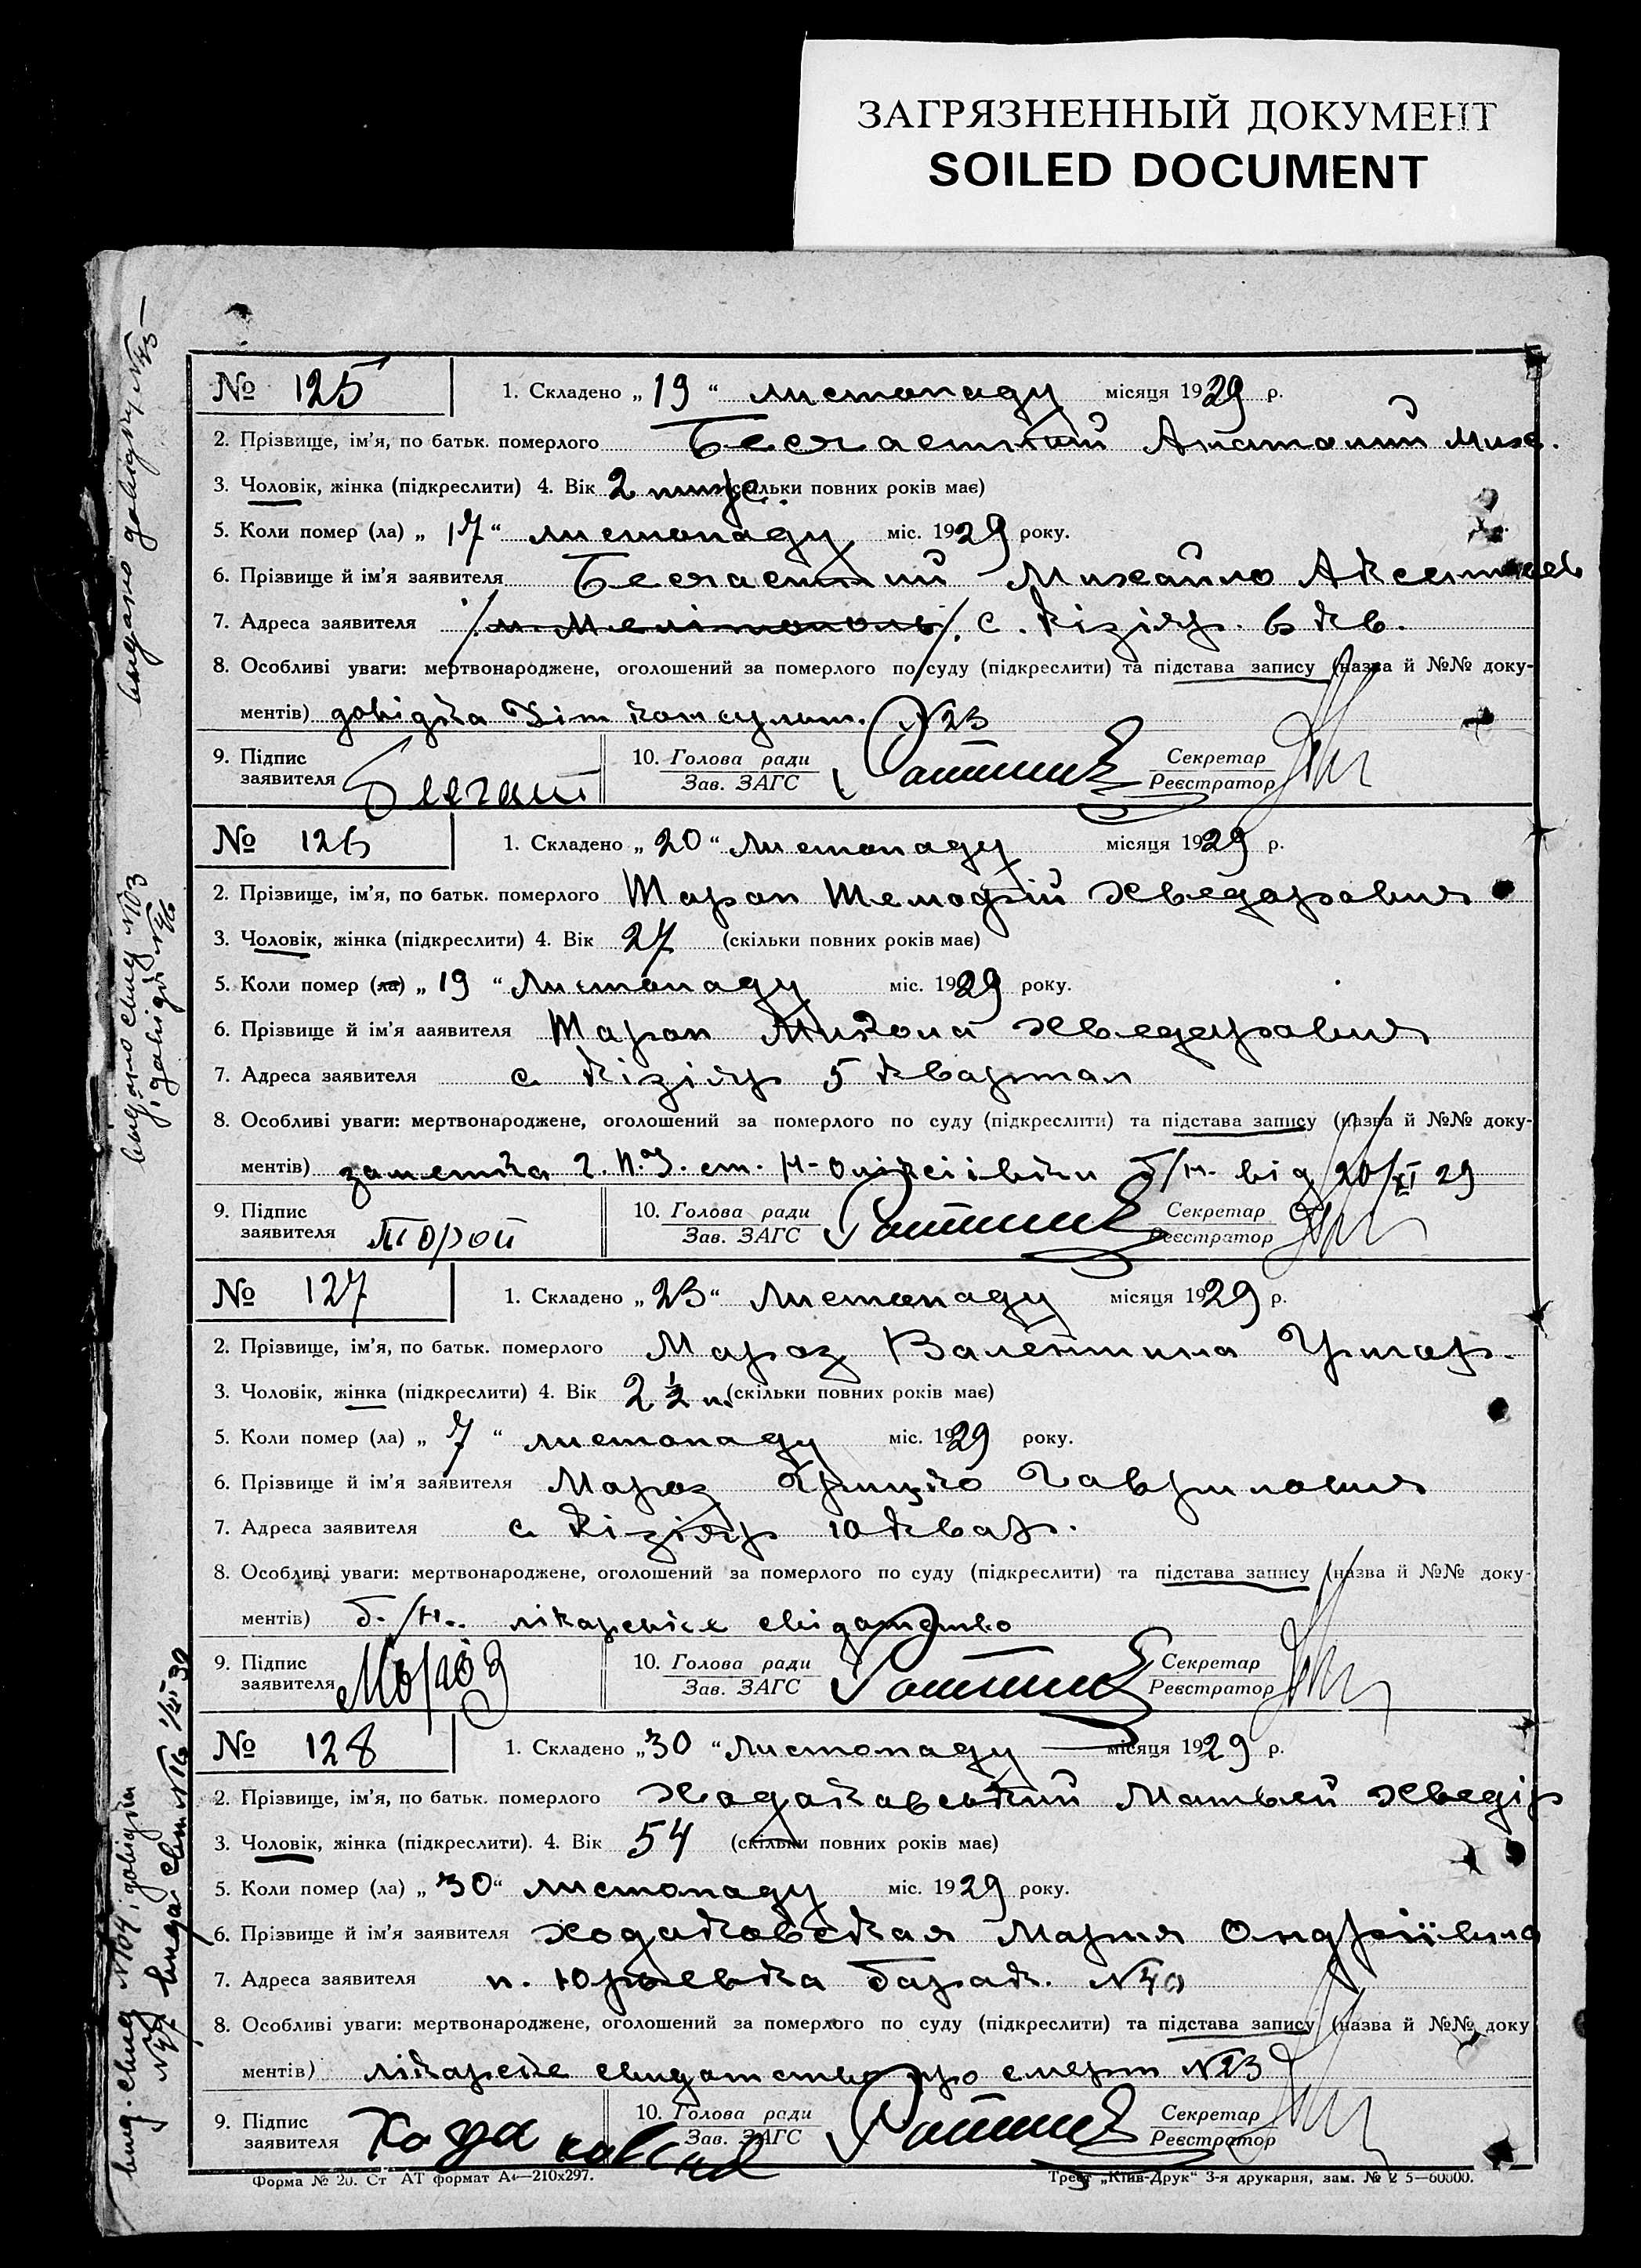 ЗАГРЯЗНЕННЫЙ ДОКУМЕНТ
SOILED DOCUMENT
№ 125 1. Складено „19“ листопаду місяця 1929 р.
2. Прізвище, ім'я, по батьк. померлого Бесчастний Анатолий Мих.
3. Чоловік, жінка (підкреслити) 4. Вік 2 тиж. (скільки повних років має)
5. Коли помер (ла) „17“ листопаду міс. 1929 року.
6. Прізвище й ім'я заявителя Бесчастний Михайло
7. Адреса заявителя /м. Мелітополь/. с. Кізіяр. 6 кв.
8. Особливі уваги: мертвонароджене, оголошений за померлого по суду (підкреслити) та підстава запису (назва й №№ доку-
ментів) довідка Діт консульт. №23
9. Підпис заявителя 10. Голова ради Зав. ЗАГС Секретар Реєстратор
№ 126 1. Складено „20“ Листопаду місяця 1929 р.
2. Прізвище, ім'я, по батьк. померлого Таран Темофій Хведарович
3. Чоловік, жінка (підкреслити) 4. Вік 27 (скільки повних років має)
5. Коли помер (ла) „19“ Листопаду міс. 1929 року.
6. Прізвище й ім'я ааявителя Таран Микола Хведерович
7. Адреса заявителя с Кізіяр 5 квартал
8. Особливі уваги: мертвонароджене, оголошений за померлого по суду (підкреслити) та підстава запису (назва й №№ доку-
ментів) заметка ст. Н-Олiксіівки б/н. від 20/XI 29
9. Підпис заявителя Торон 10. Голова ради Зав. ЗАГС Секретар Реєстратор
№ 127 1. Складено „23“ Листопаду місяця 1929 р.
2. Прізвище, ім'я, по батьк. померлого Мароз Валентина Григор.
3. Чоловік, жінка (підкреслити) 4. Вік 2 ½ (скільки повних років має)
5. Коли помер (ла) „7“ листопаду міс. 1929 року.
6. Прізвище й ім'я заявителя Мароз Грицько Гаврилович
7. Адреса заявителя с Кізіяр 10 квар.
8. Особливі уваги: мертвонароджене, оголошений за померлого по суду (підкреслити) та підстава запису (назва й №№ доку-
ментів) б./н.. свідоцтво
9. Підпис заявителя Мороз 10. Голова ради Зав. ЗАГС Секретар Реєстратор
№ 128 1. Складено „30“ Листопаду місяця 1929 р.
2. Прізвище, ім'я, по батьк. померлого Хадаковський Матвей Хведір
3. Чоловік, жінка (підкреслити). 4. Вік 54 (скільки повних років має)
5. Коли помер (ла) „30“ листопаду міс. 1929 року.
6. Прізвище й ім'я заявителя Ходаковская Мария Ондріївна
7. Адреса заявителя п. Юрьевка барак. №40
8. Особливі уваги: мертвонароджене, оголошений за померлого по суду (підкреслити) та підстава запису (назва й №№ доку
ментів) лікарске про смерт №23
9. Підпис заявителя 10. Голова ради Зав. ЗАГС Секретар Реєстратор
Форма № 20. Ст АТ формат А4—210x297. Трест „Київ-Друк“ 3-я друкарня, зам. №
видано довідку №45